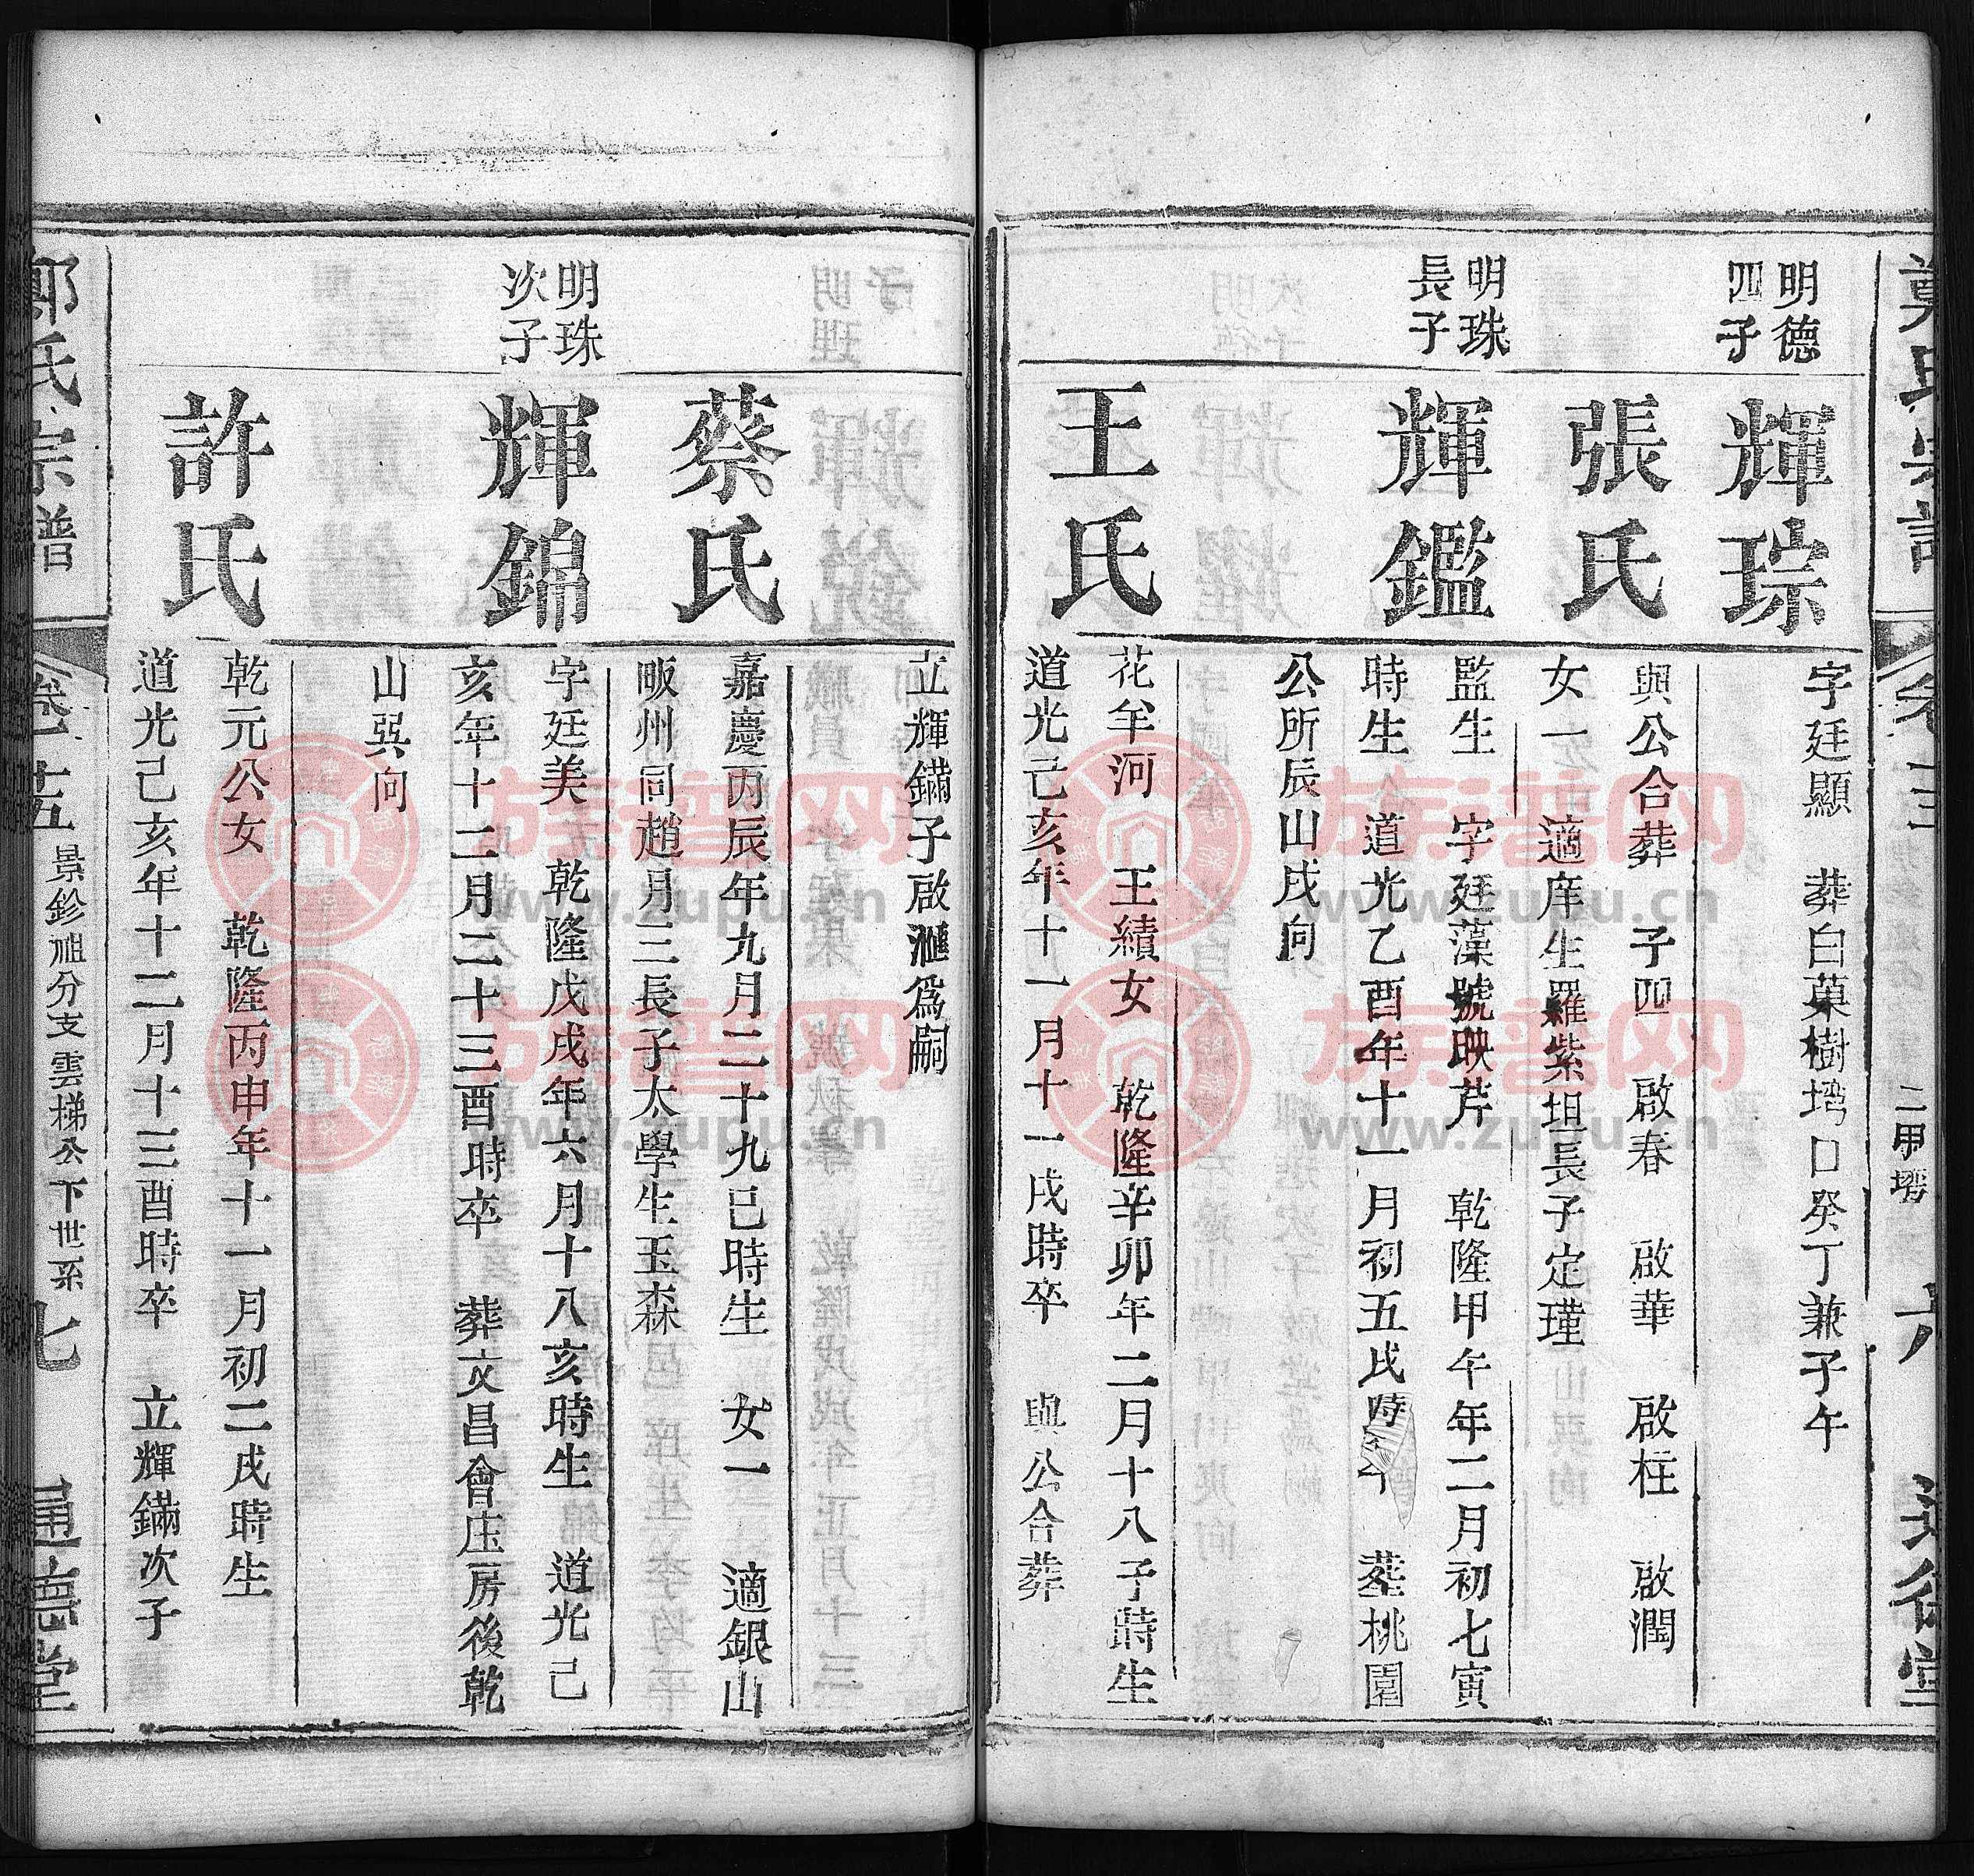 明德
四子
輝琮
字廷顯　葬白菓樹塆口癸丁兼子午
張氏
與公合葬　子四　啟春　啟華　啟柱　啟潤
女一　適庠生羅紫坦長子定瑾
明珠
長子
輝鑑
監生　字廷藻號映芹　乾隆甲午年二月初七寅
時生　道光乙酉年十一月初五戌時　葬桃園
公所辰山戌向
王氏
花牟河　王續女　乾隆辛卯年二月十八子時生
道光己亥年十一月十一戌時卒　與公合葬
二甲塆
立輝鏋子啟滙為嗣
蔡氏
嘉慶丙辰年九月二十九巳時生　女一　適銀山
畈州同趙月三長子太學生玉森
明珠
次子
輝錦
字廷美　乾隆戊戌年六月十八亥時生　道光己
亥年十二月二十三酉時卒　葬文昌會庄房後乾
山巽向
許氏
乾元公女　乾隆丙申年十一月初二戌時生
道光己亥年十二月十三酉時卒　立輝鏋次子
鄭氏宗譜
卷十五
景鈐祖分支雲梯公下世系
七
通德堂
族譜网
www.zupu.cn
族譜网
www.zupu.cn
族譜网
www.zupu.cn
族譜网
www.zupu.cn